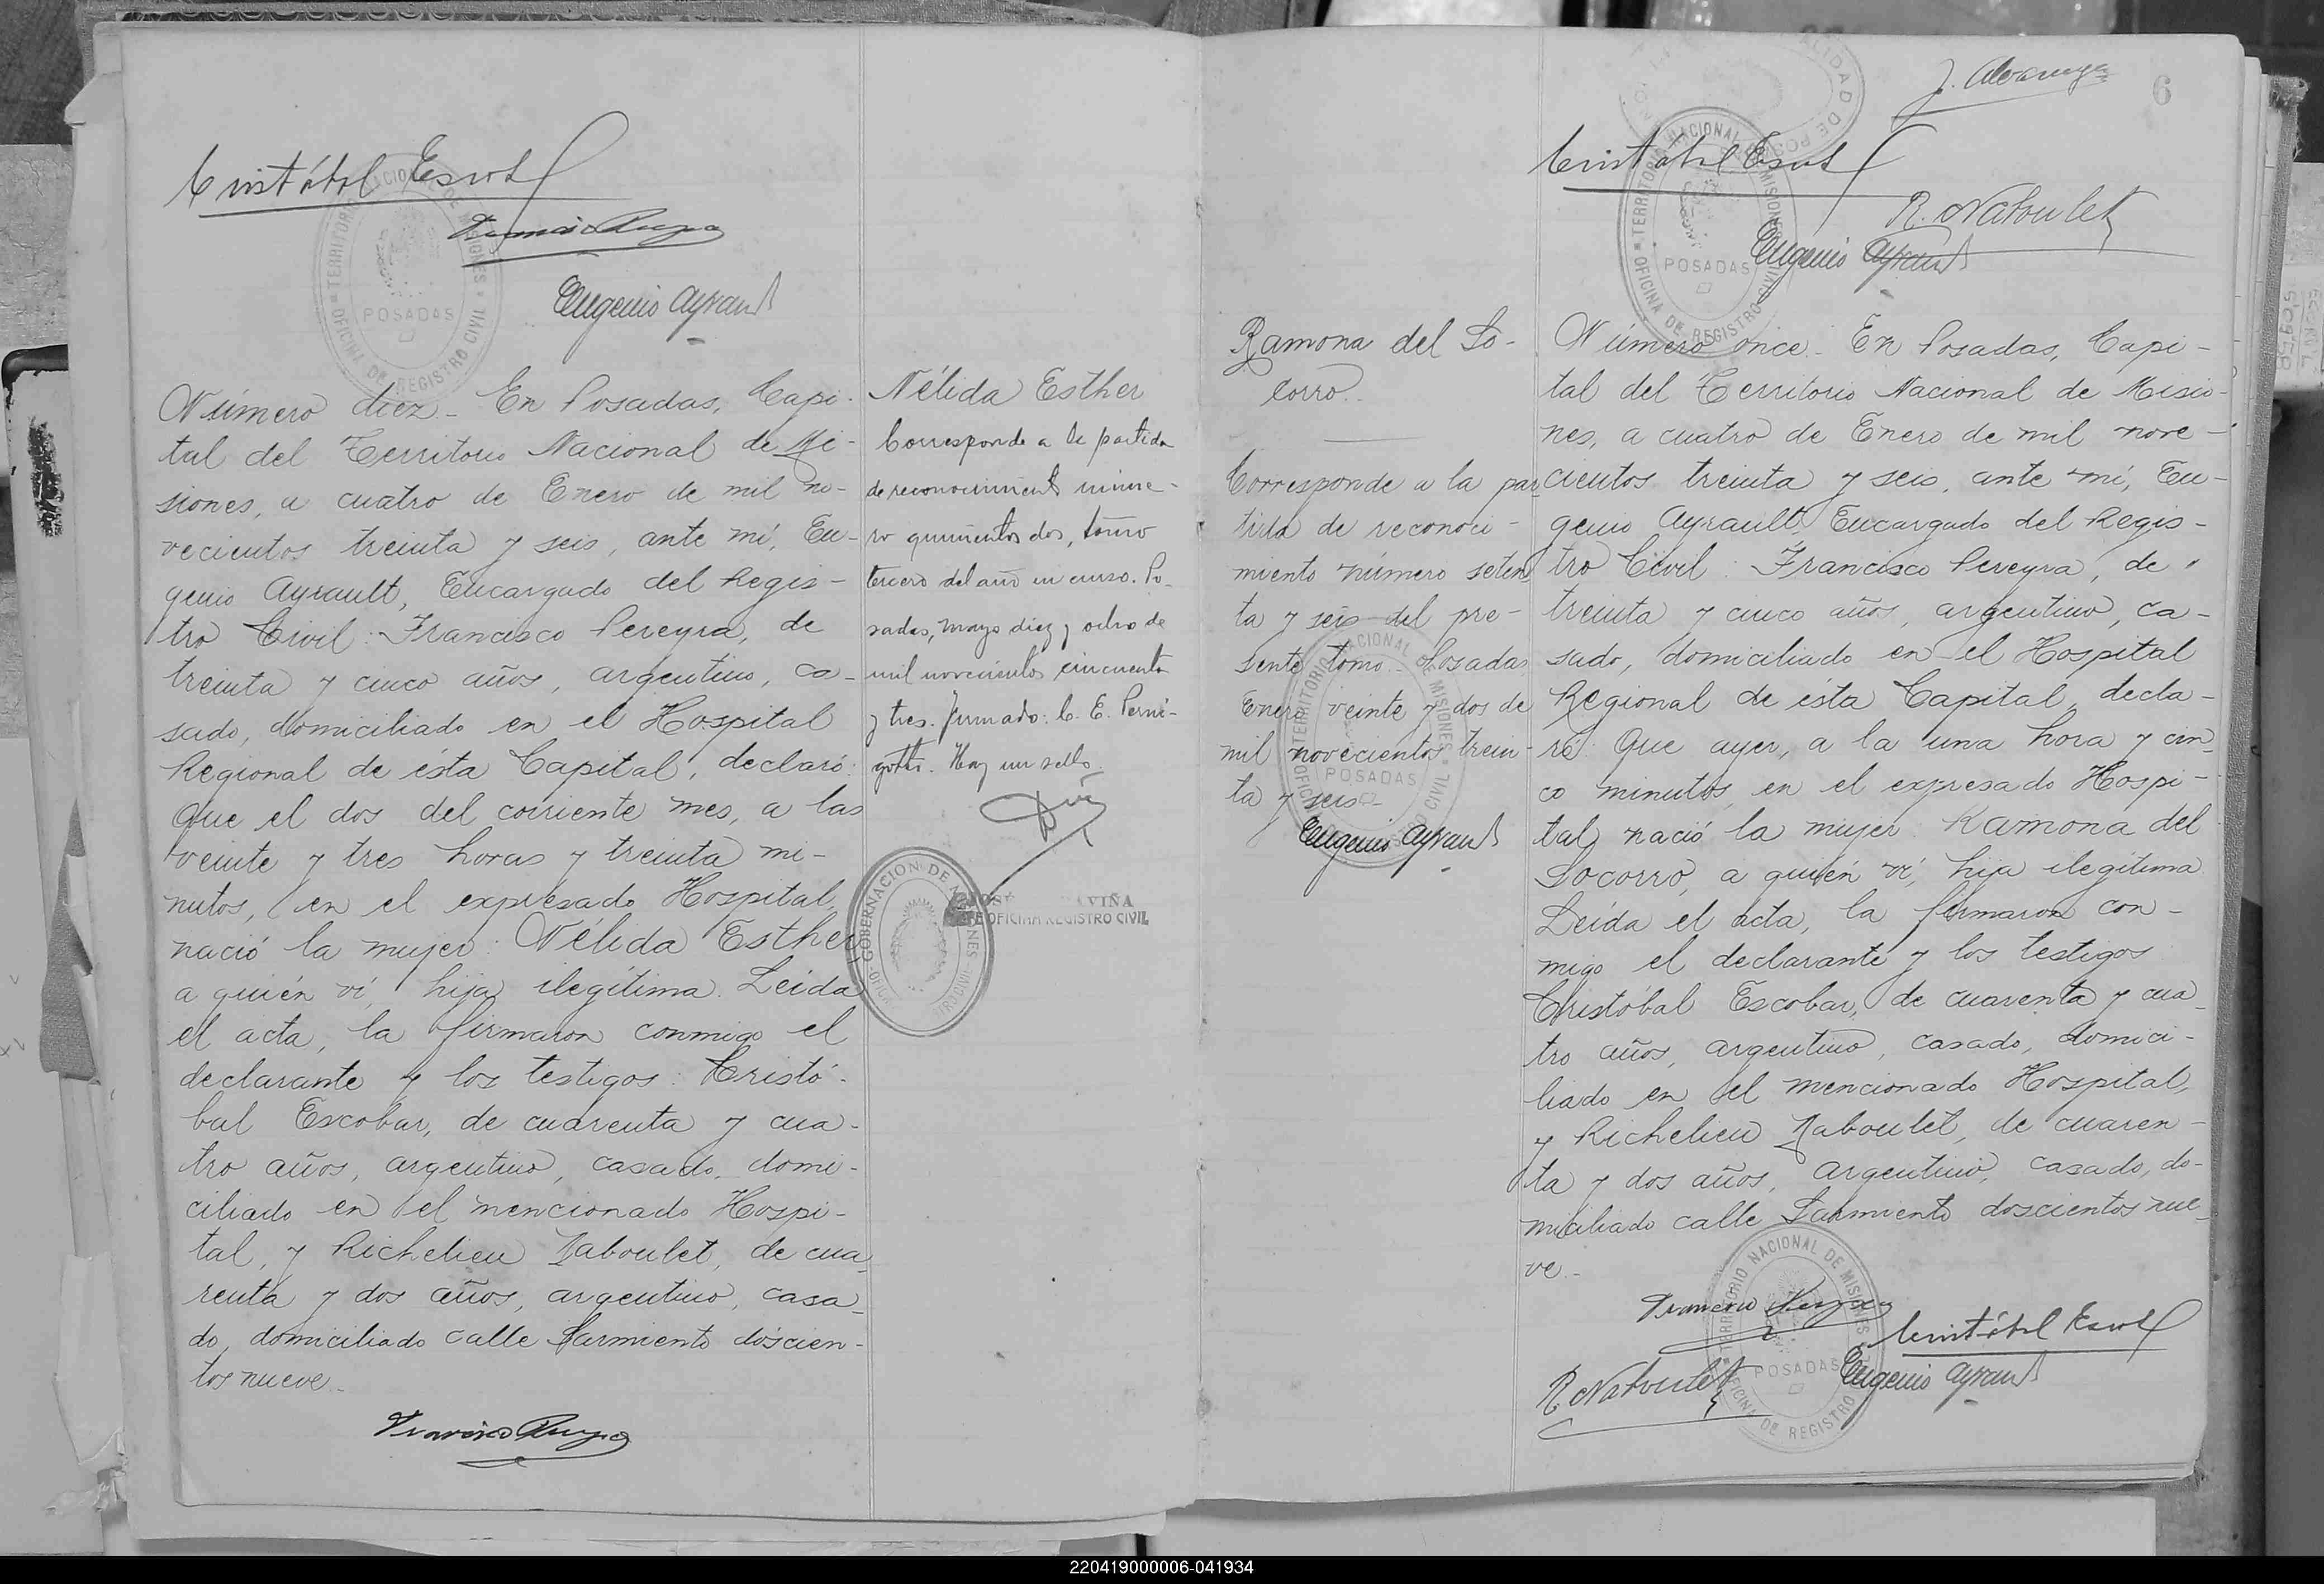 Cristóbal Escob
Francisco Pereyra
Eugenio Ayrault
TERRITORIO NACIONAL DE MISIONES
POSADAS
OFICINA DE REGISTRO CIVIL
Número diez_ En Posadas, Capi-
tal del Territorio Nacional de Mi-
siones, a cuatro de Enero de mil no-
vecientos treinta y seis, ante mí, Eu-
genio Ayrault, Encargado del Regis-
tro Civil: Francisco Pereyra, de
treinta y cinco años, argentino, ca-
sado, domiciliado en el Hospital
Regional de ésta Capital, declaró:
Que el dos del corriente mes, a las
veinte y tres horas y treinta mi-
nutos, en el expresado Hospital,
nació la mujer: Nélida Esther
a quién ví, hija ilegítima. Leída
el acta, la firmaron conmigo el
declarante y los testigos: Cristó-
bal Escobar, de cuarenta y cua-
tro años, argentino, casado, domi-
ciliado en el mencionado Hospi-
tal, y Richelieu Naboulet, de cua
renta y dos años, argentino, casa_
do, domiciliado calle Sarmiento doscien-
tos nueve_
Francisco Pereyra
Nélida Esther
Corresponde a la partida
de reconocimiento núme-
ro quinientos dos, tomo
tercero del año en curso. Po-
sadas, mayo diez y ocho de
mil novecientos cincuenta
y tres. firmado: C. E. Perni-
gotti. Hay un sello_
GOBERNACION DE MISIONES
JEFE OFICINA REGISTRO CIVIL
6
Cristóbal Escob
R. Naboulet
Eugenio Ayrault
TERRITORIO NACIONAL DE MISIONES
POSADAS
OFICINA DE REGISTRO CIVIL
Ramona del So-
corro_
Corresponde a la par
tida de reconoci-
miento número seten
ta y seis del pre-
sente tomo_ Posadas
Enero veinte y dos de
mil novecientos trein-
ta y seis_
Eugenio Ayrault
TERRITORIO NACIONAL DE MISIONES
POSADAS
Número once_ En Posadas, Capi-
tal del Territorio Nacional de Misio-
nes, a cuatro de Enero de mil nove-
cientos treinta y seis, ante mí, Eu-
genio Ayrault, Encargado del Regis-
tro Civil: Francisco Pereyra, de
treinta y cinco años, argentino, ca-
sado, domiciliado en el Hospital
Regional de ésta Capital, decla-
ró: Que ayer, a la una hora y cin_
co minutos, en el expresado Hospi-
tal, nació la mujer: Ramona del
Socorro, a quién ví, hija ilegítima.
Leída el acta, la firmaron con-
migo el declarante y los testigos
Cristóbal Escobar, de cuarenta y cua_
tro años, argentino, casado, domici-
liado en el mencionado Hospital,
y Richelieu Naboulet, de cuaren-
ta y dos años, argentino, casado, do-
miciliado calle Sarmiento doscientos nue_
ve_
Francisco Pereyra
Cristóbal Escob
R. Naboulet
Eugenio Ayrault
TERRITORIO NACIONAL DE MISIONES
POSADAS
OFICINA DE REGISTRO
220419000006-041934